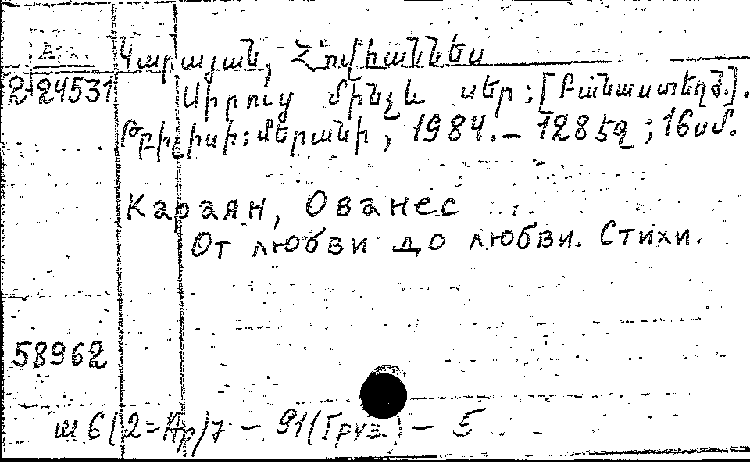 Կարայան, Հովհաննես
2-24531 Սիրուց մինչև սեր: [Բանաստեղծ.].
Թբիլիսի: Մերանի, 1984. – 128 էջ; 16 սմ.
Караян, Ованес
От любви до любви. Стихи.
58962
ш6(2=Ар)7 – 91(Груз.) – 5